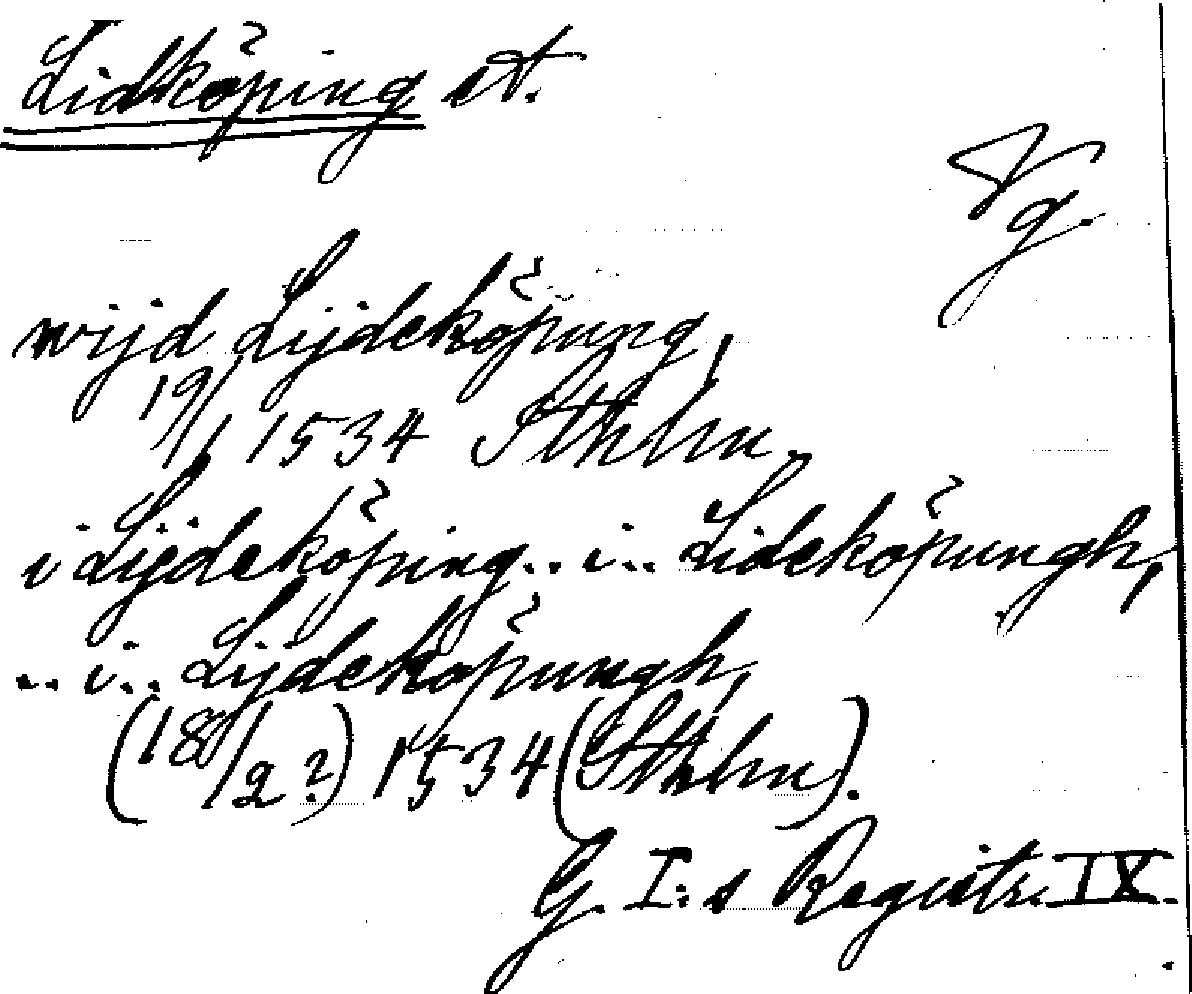 Lidköping st.
Vg.
wijd Lijdeköpung,
19/1 1534 Sthlm.
i Lijdeköping.. i.. Lideköpungh,
.. i.. Lijdeköpungh,
(18/2?) 1534 (Sthlm).
G. I:s Registr. IX.